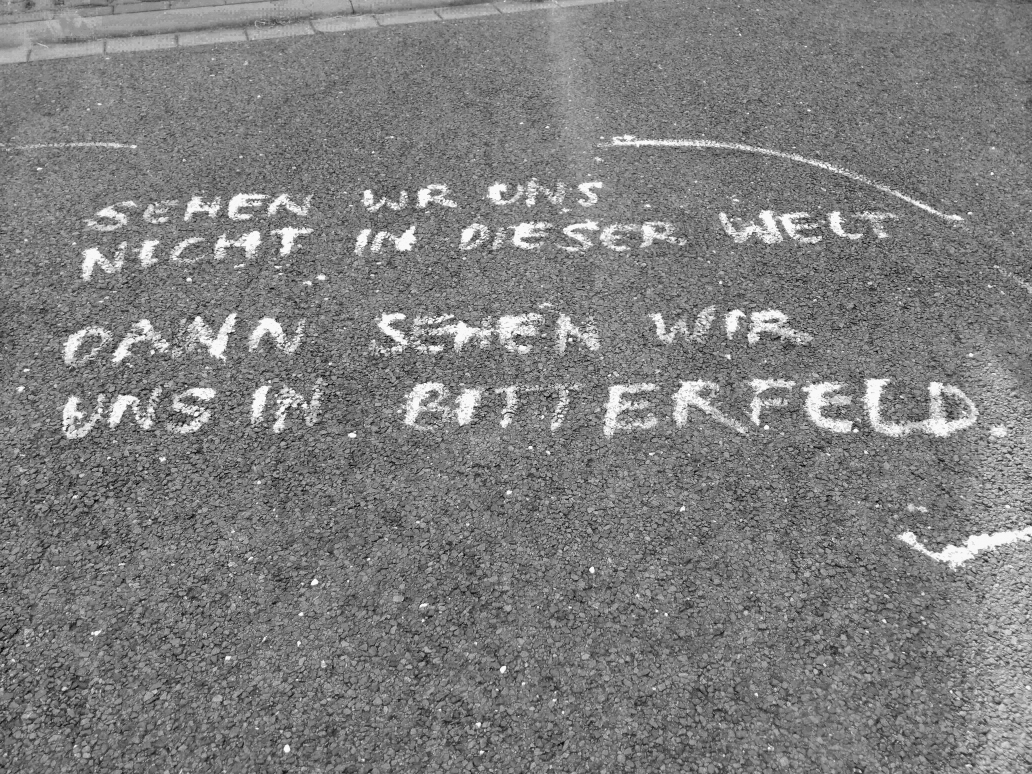 SEHEN WR UNS
NICHT IN DIESER WELT
DANN SEHEN WIR
UNS IN BITTERFELD.